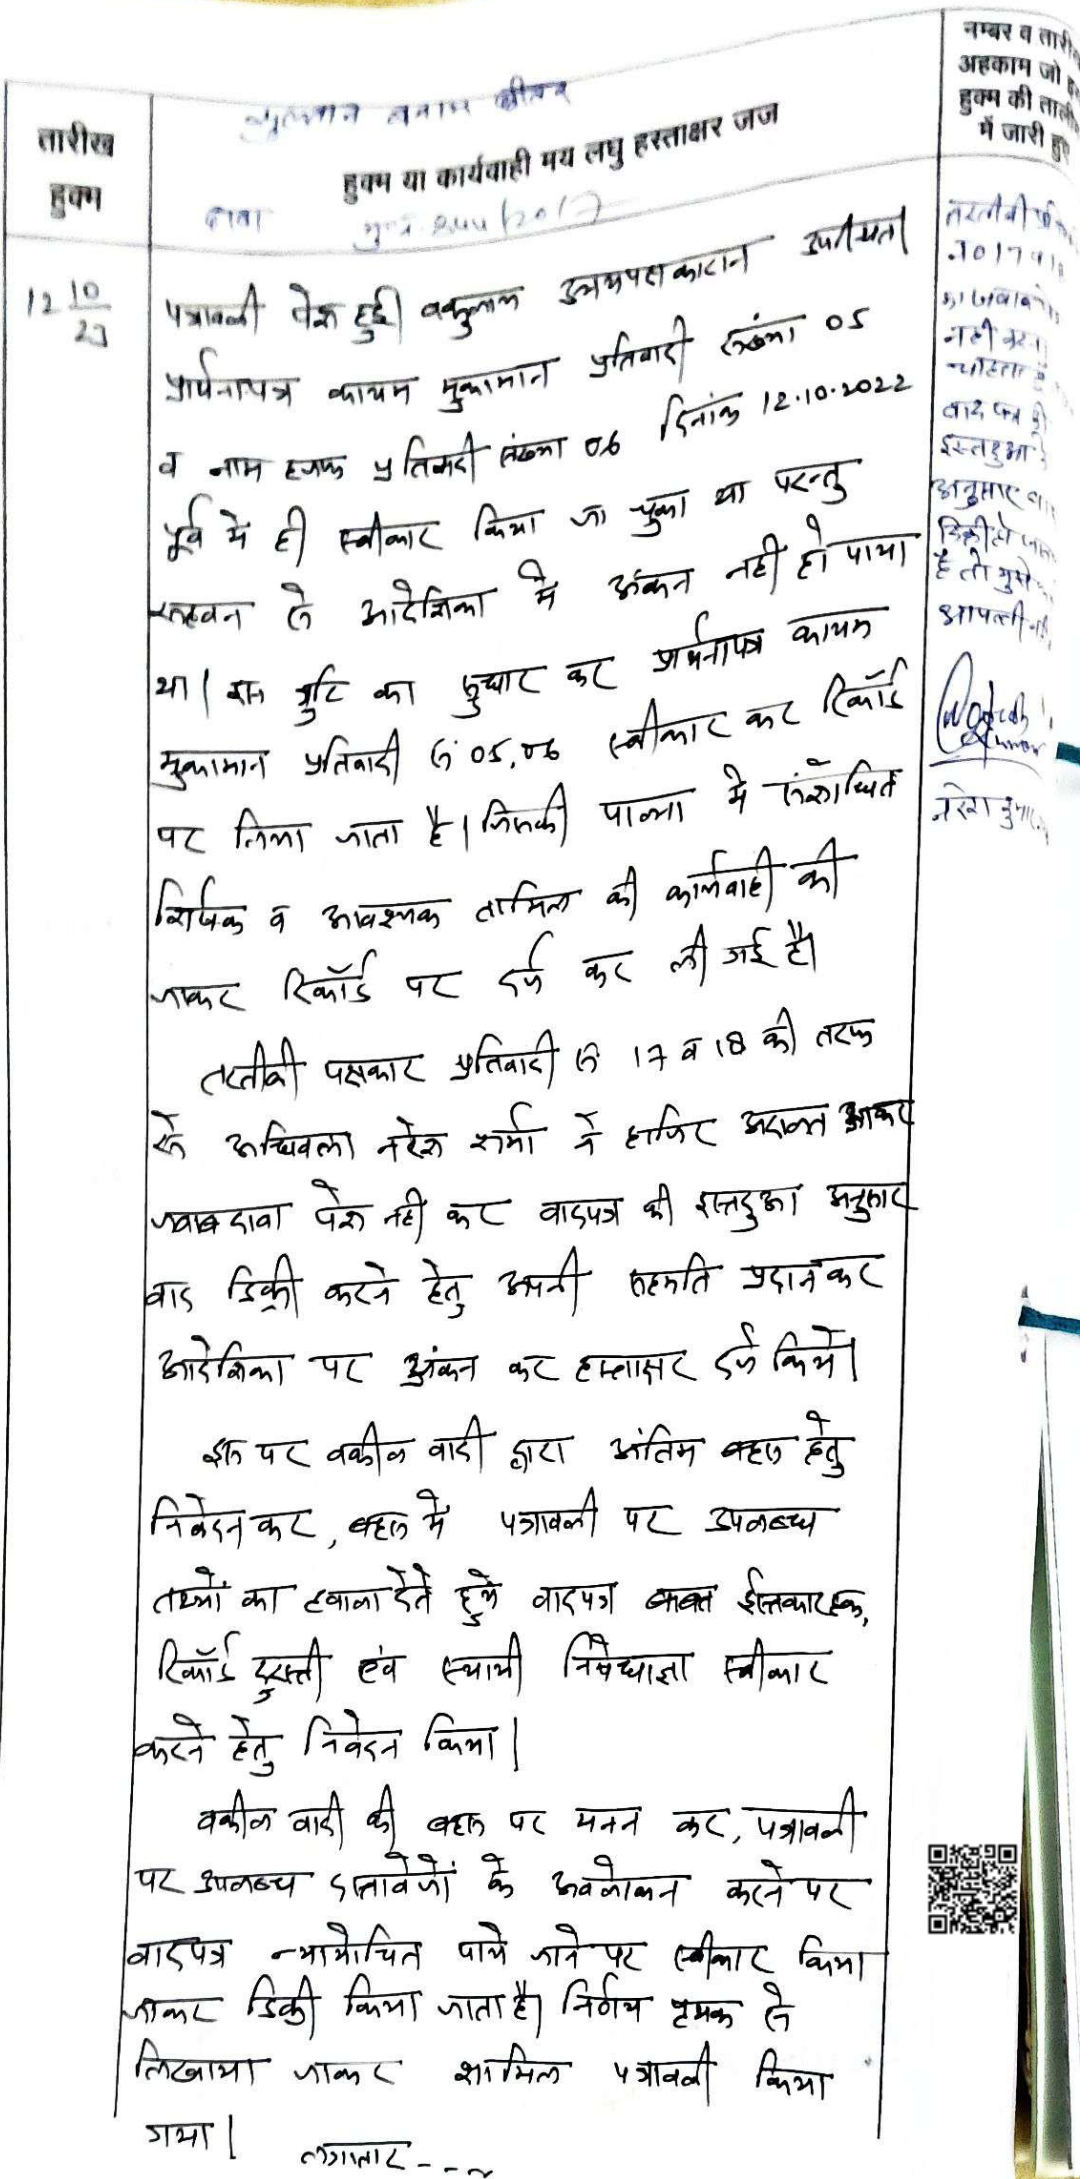 नम्बर व तारी
अहकाम जो इ
हुक्म की ताली
में जारी हुए
तारीख
हुक्म
बनाम
हुक्म या कार्यवाही मय लघु हस्ताक्षर जज
दावा
12 10/23
पत्रावली पेश हुई। वकुलाय उभयपक्षकारान उपस्थित।
प्रार्थनापत्र कायम मुकामान प्रतिवादी संख्या 05
व नाम हजफ प्रतिवादी संख्या 06 दिनांक 12.10.2022
पूर्व में ही स्वीकार किया जा चुका था परन्तु
सहवन से आदेशिका में अंकन नही हो पाया
था। इस त्रुटि का सुधार कर प्रार्थनापत्र कायम
मुकामान प्रतिवादी सं 05,06 स्वीकार कर रिकॉर्ड
पर लिया जाता है। जिसकी पालना में संशोधित
शिर्षक व आवश्यक तामिल की कार्यवाही की
जाकर रिकॉर्ड पर दर्ज कर ली गई है।
तरतीबी पक्षकार प्रतिवादी सं 17 व 18 की तरफ
से अधिवक्ता नरेश शर्मा ने हाजिर अदालत आकर
जवाब दावा पेश नही कर वादपत्र की इस्तदुआ अनुसार
वाद डिक्री करने हेतु अपनी सहमति प्रदान कर
आदेशिका पर अंकन कर हस्ताक्षर दर्ज किये।
इस पर वकील वादी द्वारा अंतिम बहस हेतु
निवेदन कर, बहस में पत्रावली पर उपलब्ध
तथ्यों का हवाला देते हुये वादपत्र बाबत ईस्तकरार हक,
रिकॉर्ड दुरुस्ती एंव स्थायी निषेधाज्ञा स्वीकार
करने हेतु निवेदन किया।
वकील वादी की बहस पर मनन कर, पत्रावली
पर उपलब्ध दस्तावेजों के अवलोकन करने पर
वादपत्र न्यायोचित पाये जाने पर स्वीकार किया
जाकर डिक्री किया जाता है। निर्णय पृथक से
लिखाया जाकर शामिल पत्रावली किया
गया।
लगातार---
तरतीबी
का जवाब
नही करना
चाहता है
वाद पत्र की
इस्तदुआ के
अनुसार वाद
डिक्री हो जाता
है तो मुझे
आपत्ती नही
नरेश कुमार